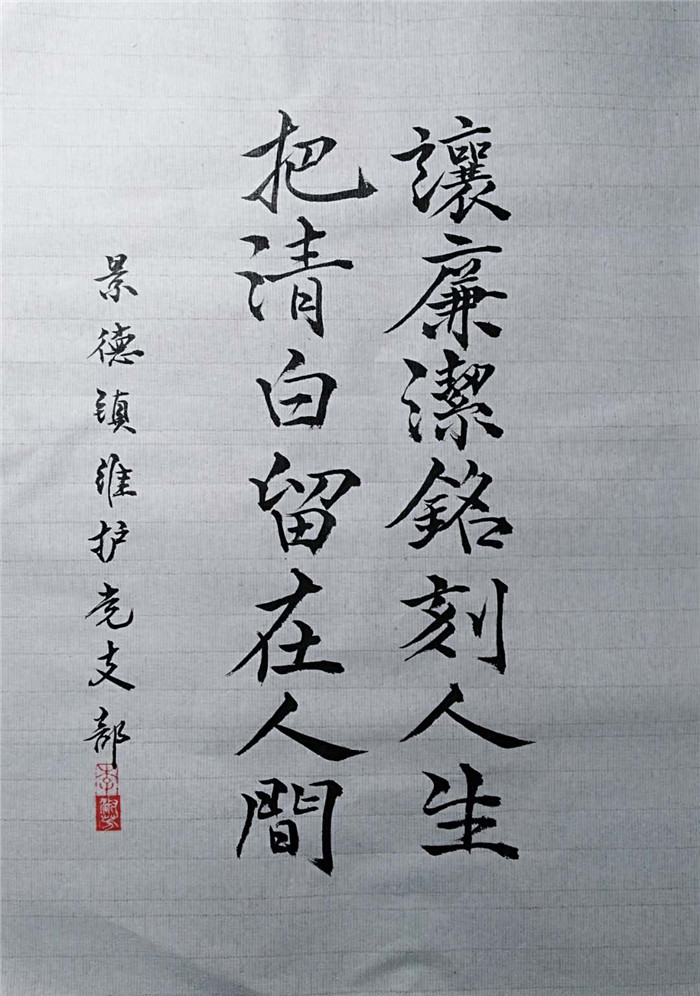 讓廉潔銘刻人生
把清白留在人間
景德镇维护党支部
李